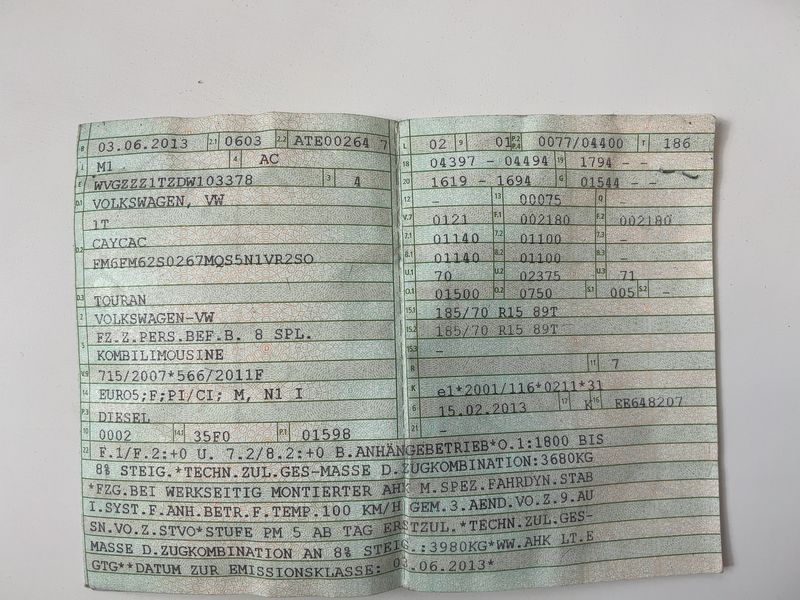 B 03.06.2013 2.1 0603 2.2 ATE00264 7
J M1 4 AC
E WVGZZZ1TZDW103378 3 4
D.1 VOLKSWAGEN, VW
1T
D.2 CAYCAC
FM6FM62S0267MQS5N1VR2SO
D.3 TOURAN
2 VOLKSWAGEN-VW
5 FZ.Z.PERS.BEF.B. 8 SPL.
KOMBILIMOUSINE
V.9 715/2007*566/2011F
14 EURO5;F;PI/CI; M, N1 I
P.3 DIESEL
10 0002 14.1 35F0 P.1 01598
L 02 9 01 P.2 P.4 0077/04400 T 186
18 04397 - 04494 19 1794 - -
20 1619 - 1694 G 01544 - -
12 - 13 00075 Q -
V.7 0121 F.1 002180 F.2 002180
7.1 01140 7.2 01100 7.3 -
8.1 01140 8.2 01100 8.3 -
U.1 70 U.2 02375 U.3 71
O.1 01500 O.2 0750 S.1 005 S.2 -
15.1 185/70 R15 89T
15.2 185/70 R15 89T
15.3 -
R 11 7
K e1*2001/116*0211*31
6 15.02.2013 17 K 16 EE648207
21 -
22 F.1/F.2:+0 U. 7.2/8.2:+0 B.ANHÄNGEBETRIEB*O.1:1800 BIS
8% STEIG.*TECHN.ZUL.GES-MASSE D.ZUGKOMBINATION:3680KG
*FZG.BEI WERKSEITIG MONTIERTER AHK M.SPEZ.FAHRDYN.STAB
I.SYST.F.ANH.BETR.F.TEMP.100 KM/H GEM.3.AEND.VO.Z.9.AU
SN.VO.Z.STVO*STUFE PM 5 AB TAG ERSTZUL.*TECHN.ZUL.GES-
MASSE D.ZUGKOMBINATION AN 8% STEIG.:3980KG*WW.AHK LT.E
GTG**DATUM ZUR EMISSIONSKLASSE: 03.06.2013*